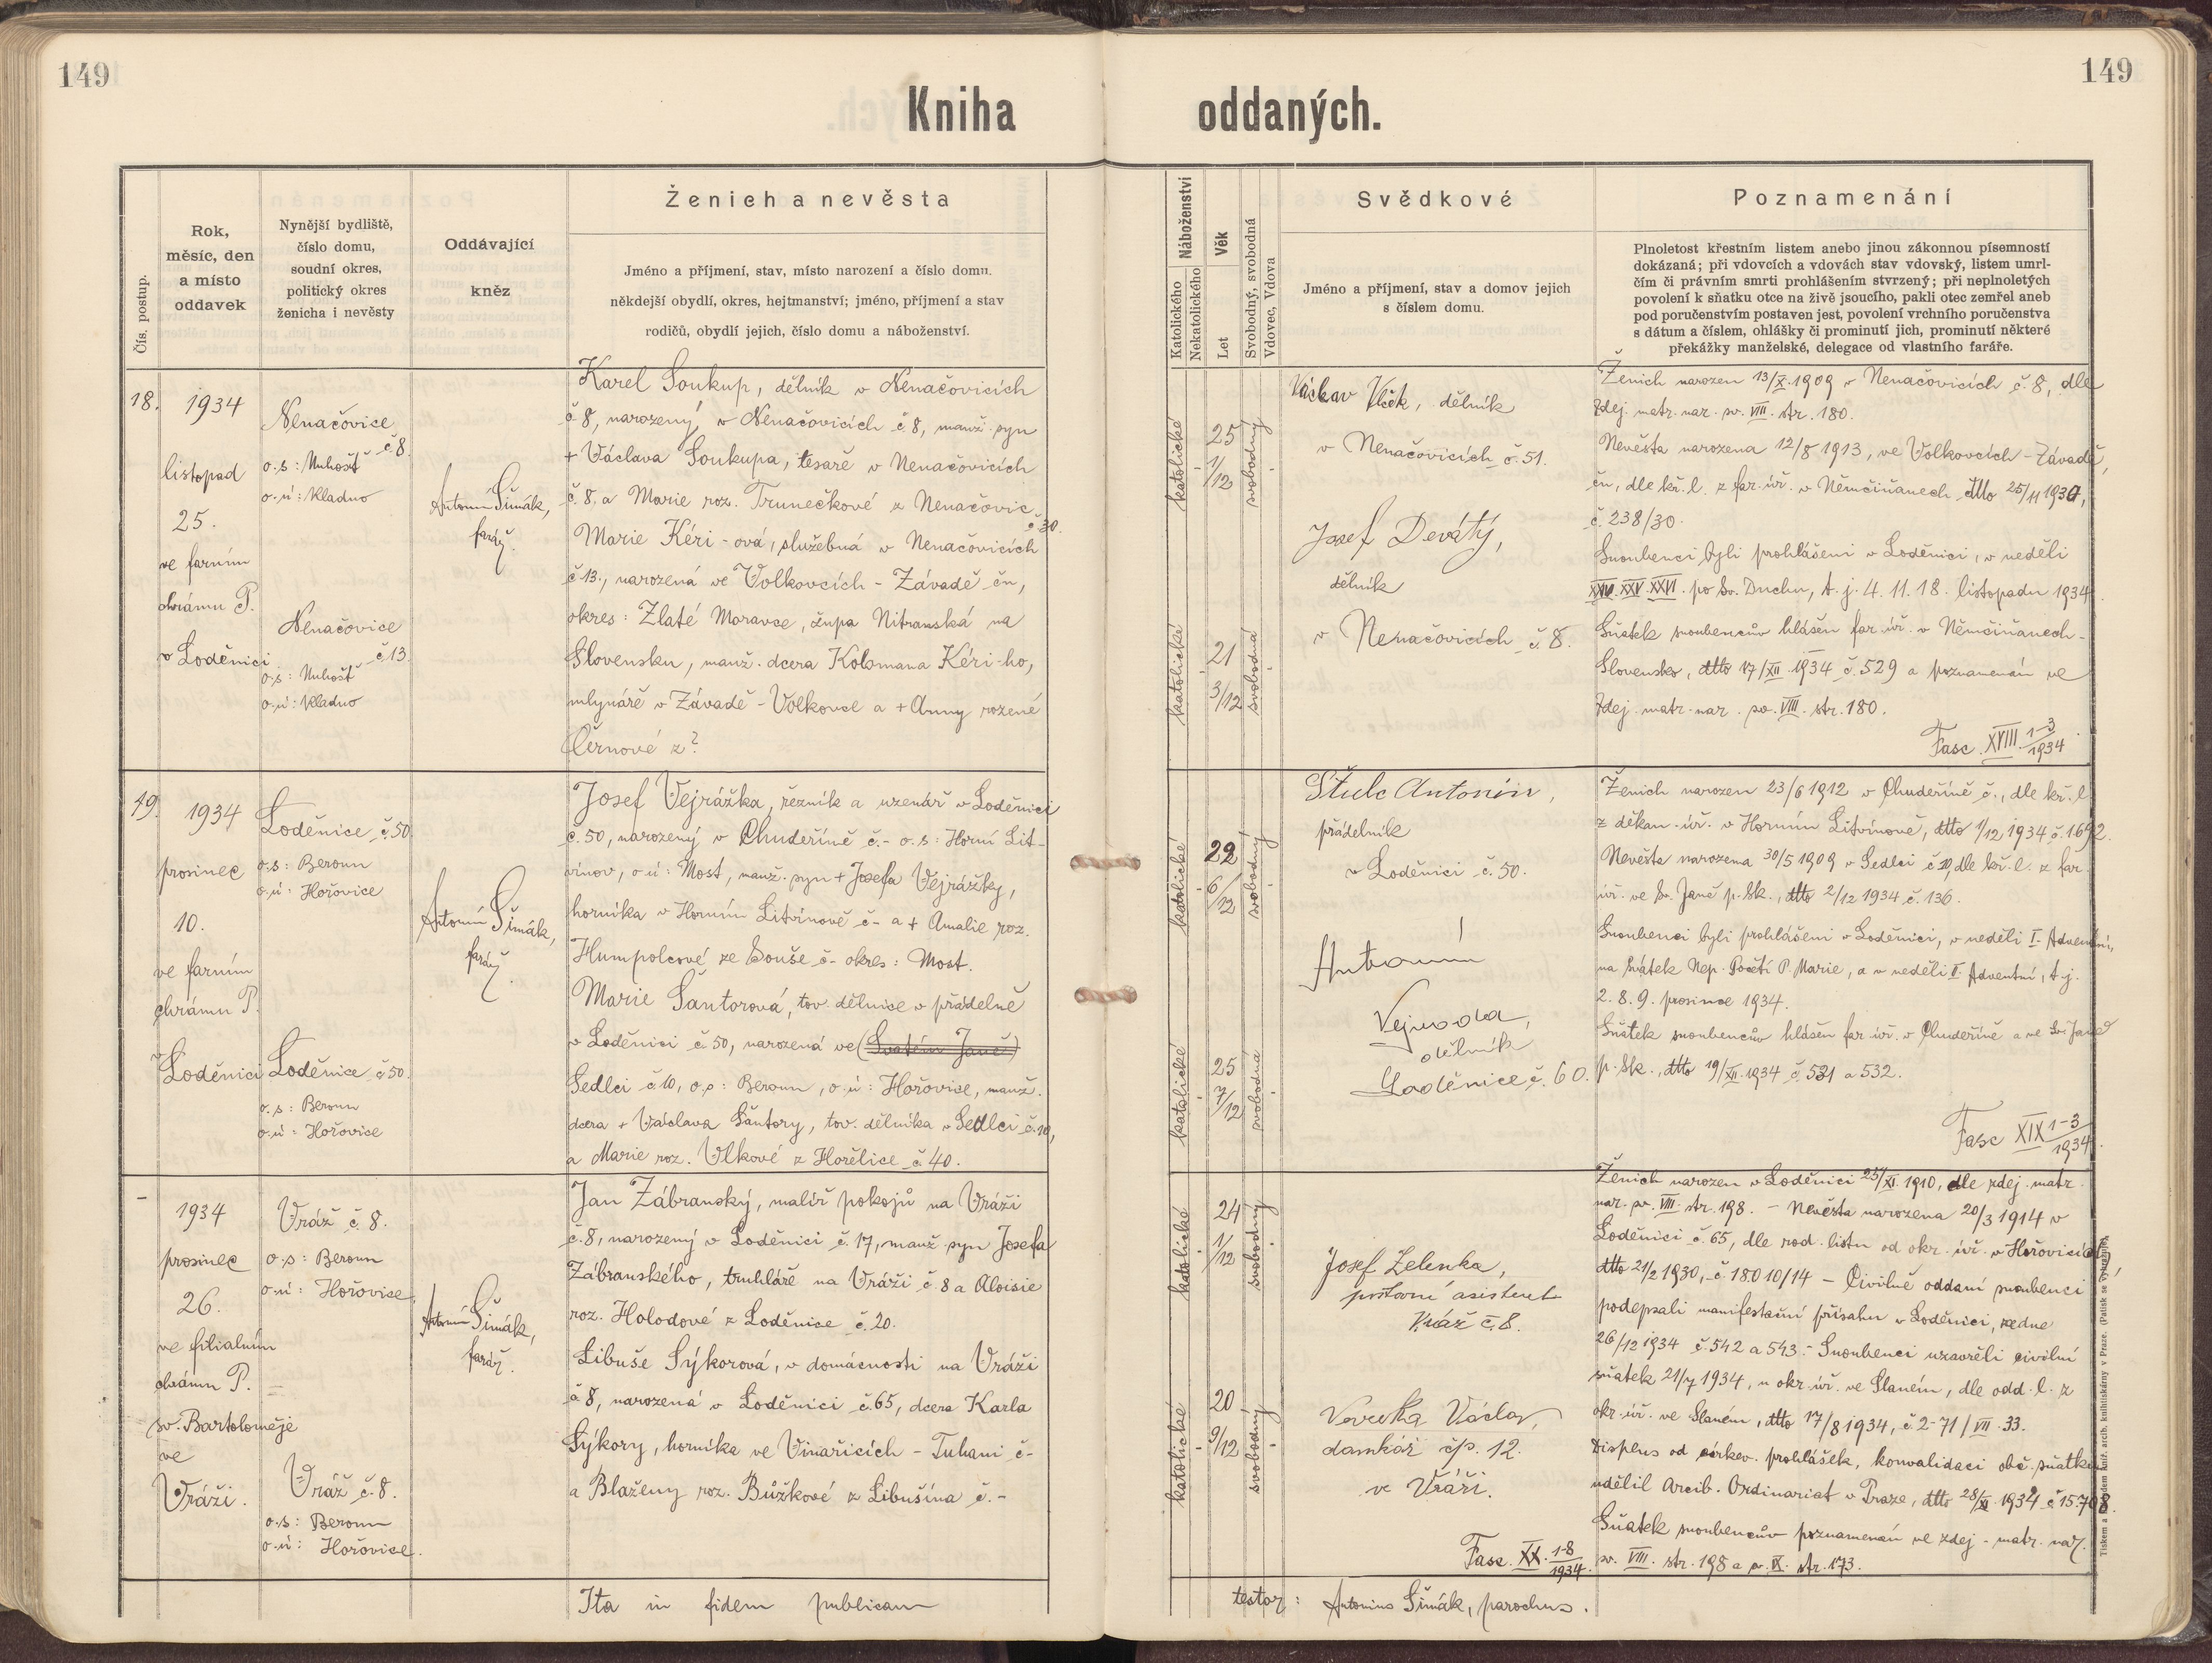 149
149
Kniha oddaných.
Čís. postup.
Rok,
měsíc, den
a místo
oddavek
Nynější bydliště,
číslo domu,
soudní okres,
politický okres
ženicha i nevěsty
Oddávající
kněz
Ženich a nevěsta
Jméno a příjmení, stav, místo narození a číslo domu.
někdejší obydlí, okres, hejtmanství; jméno, příjmení a stav
rodičů, obydlí jejich, číslo domu a náboženství.
Náboženství
Katolického
Nekatolického
Věk
Let
Svobodný, svobodná
Vdovec, Vdova
Svědkové
Jméno a příjmení, stav a domov jejich
s číslem domu.
Poznamenání
Plnoletost křestním listem anebo jinou zákonnou písemností
dokázaná; při vdovcích a vdovách stav vdovský, listem umrl-
čím či právním smrti prohlášením stvrzený; při neplnoletých
povolení k sňatku otce na živě jsoucího, pakli otec zemřel aneb
pod poručenstvím postaven jest, povolení vrchního poručenstva
s dátum a číslem, ohlášky či prominutí jich, prominutí některé
překážky manželské, delegace od vlastního faráře.
18.
1934
listopad
25.
ve farním
chrámu P.
v Loděnici
Nenačovice
č 8.
o.s: Unhošť
o.ú: Kladno
Nenačovice
č 13.
o.s: Unhošť
o.ú: Kladno
Antonín Šimák,
farář.
Karel Soukup, dělník v Nenačovicích
č 8, narozený v Nenačovicích č 8, manž. syn
+ Václava Soukupa, tesaře v Nenačovicích
č. 8. a Marie roz. Trunečkové z Nenačovic
č 30.
Marie Kéri-ová, služebná v Nenačovicích
č 13., narozená ve Volkovcích - Závadě čn,
okres: Zlaté Moravce, župa Nitranská na
Slovensku, manž. dcera Kolomana Kéri-ho,
mlynáře v Závadě - Volkovce a + Anny rozené
Černové z?
katolické
25
1/12
svobodný
katolické
21
3/12
svobodná
Václav Vlček, dělník
v Nenačovicích č. 51.
Josef Devátý,
dělník
v Nenačovicích č. 8.
Ženich narozen 13/X. 1909 v Nenačovicích č. 8, dle
zdej. matr. nar. sv. VIII. str. 180.
Nevěsta narozena 12/8 1913, ve Volkovcích - Závadě,
čn, dle kř. l. z far. úř. v Němčiňanech dtto 25/11 1930,
č. 238/30.
Snoubenci byli prohlášeni v Loděnici, v neděli
XXIV. XXV. XXVI. po Sv. Duchu, t. j. 4. 11. 18. listopadu 1934.
Sňatek snoubencův hlášen far. úř. v Němčiňanech -
Slovensko, dtto 17/XII. 1934 č. 529 a poznamenán ve
zdej. matr. nar. sv. VIII. str. 180.
Fasc. XVIII. 1-3/1934
19.
1934
prosinec
10.
ve farním
chrámu P.
v
Loděnici
Loděnice č 50.
o.s: Beroun
o.ú: Hořovice
Loděnice č 50.
o.s: Beroun
o.ú: Hořovice
Antonín Šimák,
farář.
Josef Vejrážka, řezník a uzenář v Loděnici
č. 50, narozený v Chudeříně č.- o.s: Horní Lit-
vínov, o.ú: Most, manž. syn + Josefa Vejrážky,
horníka v Horním Litvínově č- a + Amalie roz.
Humpolcové ze Souše č- okres: Most.
Marie Šantorová, tov. dělnice v přádelně
v Loděnici č. 50, narozená ve (Svatém Janě)
Sedlci č 10, o.s: Beroun, o.ú: Hořovice, manž.
dcera + Václava Šantory, tov. dělníka v Sedlci č. 10,
a Marie roz. Vlkové z Hořelice č 40.
katolické
22
6/12
svobodný
katolické
25
7/12
svobodná
Štulc Antonín,
přádelník
v Loděnici č. 50.
Antonín
Vejvoda,
dělník
Loděnice č. 60.
Ženich narozen 23/6 1912 v Chudeříně č., dle kř. l.
z děkan. úř. v Horním Litvínově, dtto 1/12 1934 č. 1692.
Nevěsta narozena 30/5 1909 v Sedlci č 10, dle kř. l. z far.
úř. ve Sv. Janě p. Sk., dtto 2/12 1934 č. 136.
Snoubenci byli prohlášeni v Loděnici, v neděli I. Adventní,
na svátek Nep. Početí P. Marie, a v neděli II. Adventní, t.j.
2. 8. 9. prosince 1934.
Sňatek snoubencův hlášen far. úř. v Chudeříně a ve Sv. Janě
p. Sk., dtto 19/XII. 1934 č. 531 a 532.
Fasc XIX 1-3/1934.
-
1934
prosinec
26.
ve filialním
chrámu P.
sv. Bartoloměje
ve
Vráži.
Vráž č. 8.
o.s: Beroun
o.ú: Hořovice
Vráž č. 8.
o.s: Beroun
o.ú: Hořovice.
Antonín Šimák,
farář.
Jan Zábranský, malíř pokojů na Vráži
č. 8, narozený v Loděnici č. 17, manž. syn Josefa
Zábranského, truhláře na Vráži č 8 a Aloisie
roz. Holodové z Loděnice č. 20.
Libuše Sýkorová, v domácnosti na Vráži
č 8, narozená v Loděnici č. 65, dcera Karla
Sýkory, horníka ve Vinařicích - Tuhani č-
a Blaženy roz. Bůžkové z Libušína č.-
katolické
24
1/12
svobodný
katolické
20
9/12
svobodný
Josef Zelenka,
poštovní asistent
Vráž č. 8.
Vavruška Václav,
čp. 12.
ve Vráži.
Fasc. XX. 1-8/1934.
Ženich narozen v Loděnici 25/XI. 1910, dle zdej. matr.
nar. sv. VIII. str. 198. - Nevěsta narozena 20/3 1914 v
Loděnici č. 65, dle rod. listu od okr. úř. v Hořovicích,
dtto 21/2 1930, č. 18010/14 - Civilně oddaní snoubenci
podepsali manifestační přísahu v Loděnici, ze dne
26/12 1934 č. 542 a 543. - Snoubenci uzavřeli civilní
sňatek 21/7 1934, u okr. úř. ve Slaném, dle odd. l. z
okr. úř. ve Slaném, dtto 17/8 1934, č. 2-71/VII-33.
Dispens od církev. prohlášek, konvalidaci obč. sňatku
udělil Arcib. Ordinariat v Praze, dtto 28/XI. 1934 č. 15.708.
Sňatek snoubencův poznamenán ve zdej. matr. nar.
sv. VIII. str. 198 a sv. IX. str. 173.
Ita in fidem publicam
testor: Antonius Šimák, parochus.